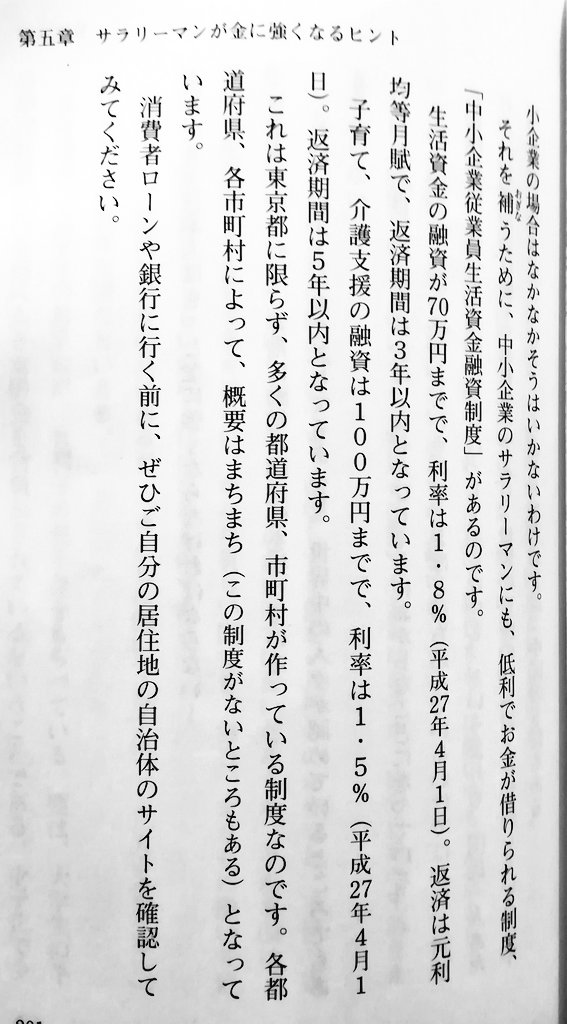 第五章　サラリーマンが金に強くなるヒント
小企業の場合はなかなかそうはいかないわけです。
それを補うために、中小企業のサラリーマンにも、低利でお金が借りられる制度、
「中小企業従業員生活資金融資制度」があるのです。
生活資金の融資が70万円までで、利率は１・８％（平成27年４月１日）。返済は元利
均等月賦で、返済期間は３年以内となっています。
子育て、介護支援の融資は１００万円までで、利率は１・５％（平成27年４月１
日）。返済期間は５年以内となっています。
これは東京都に限らず、多くの都道府県、市町村が作っている制度なのです。各都
道府県、各市町村によって、概要はまちまち（この制度がないところもある）となって
います。
消費者ローンや銀行に行く前に、ぜひご自分の居住地の自治体のサイトを確認して
みてください。